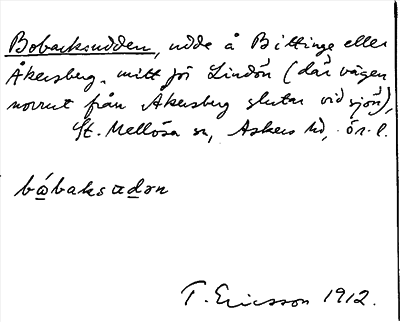 Bobacksudden, udde å Bittinge eller
Åkersberg, mitt för Lindön (där vägen
norrut från Åkersberg slutar vid sjön),
St. Mellösa sn, Askers hd, ör. l.
båbaksudən
T. Ericsson 1912.